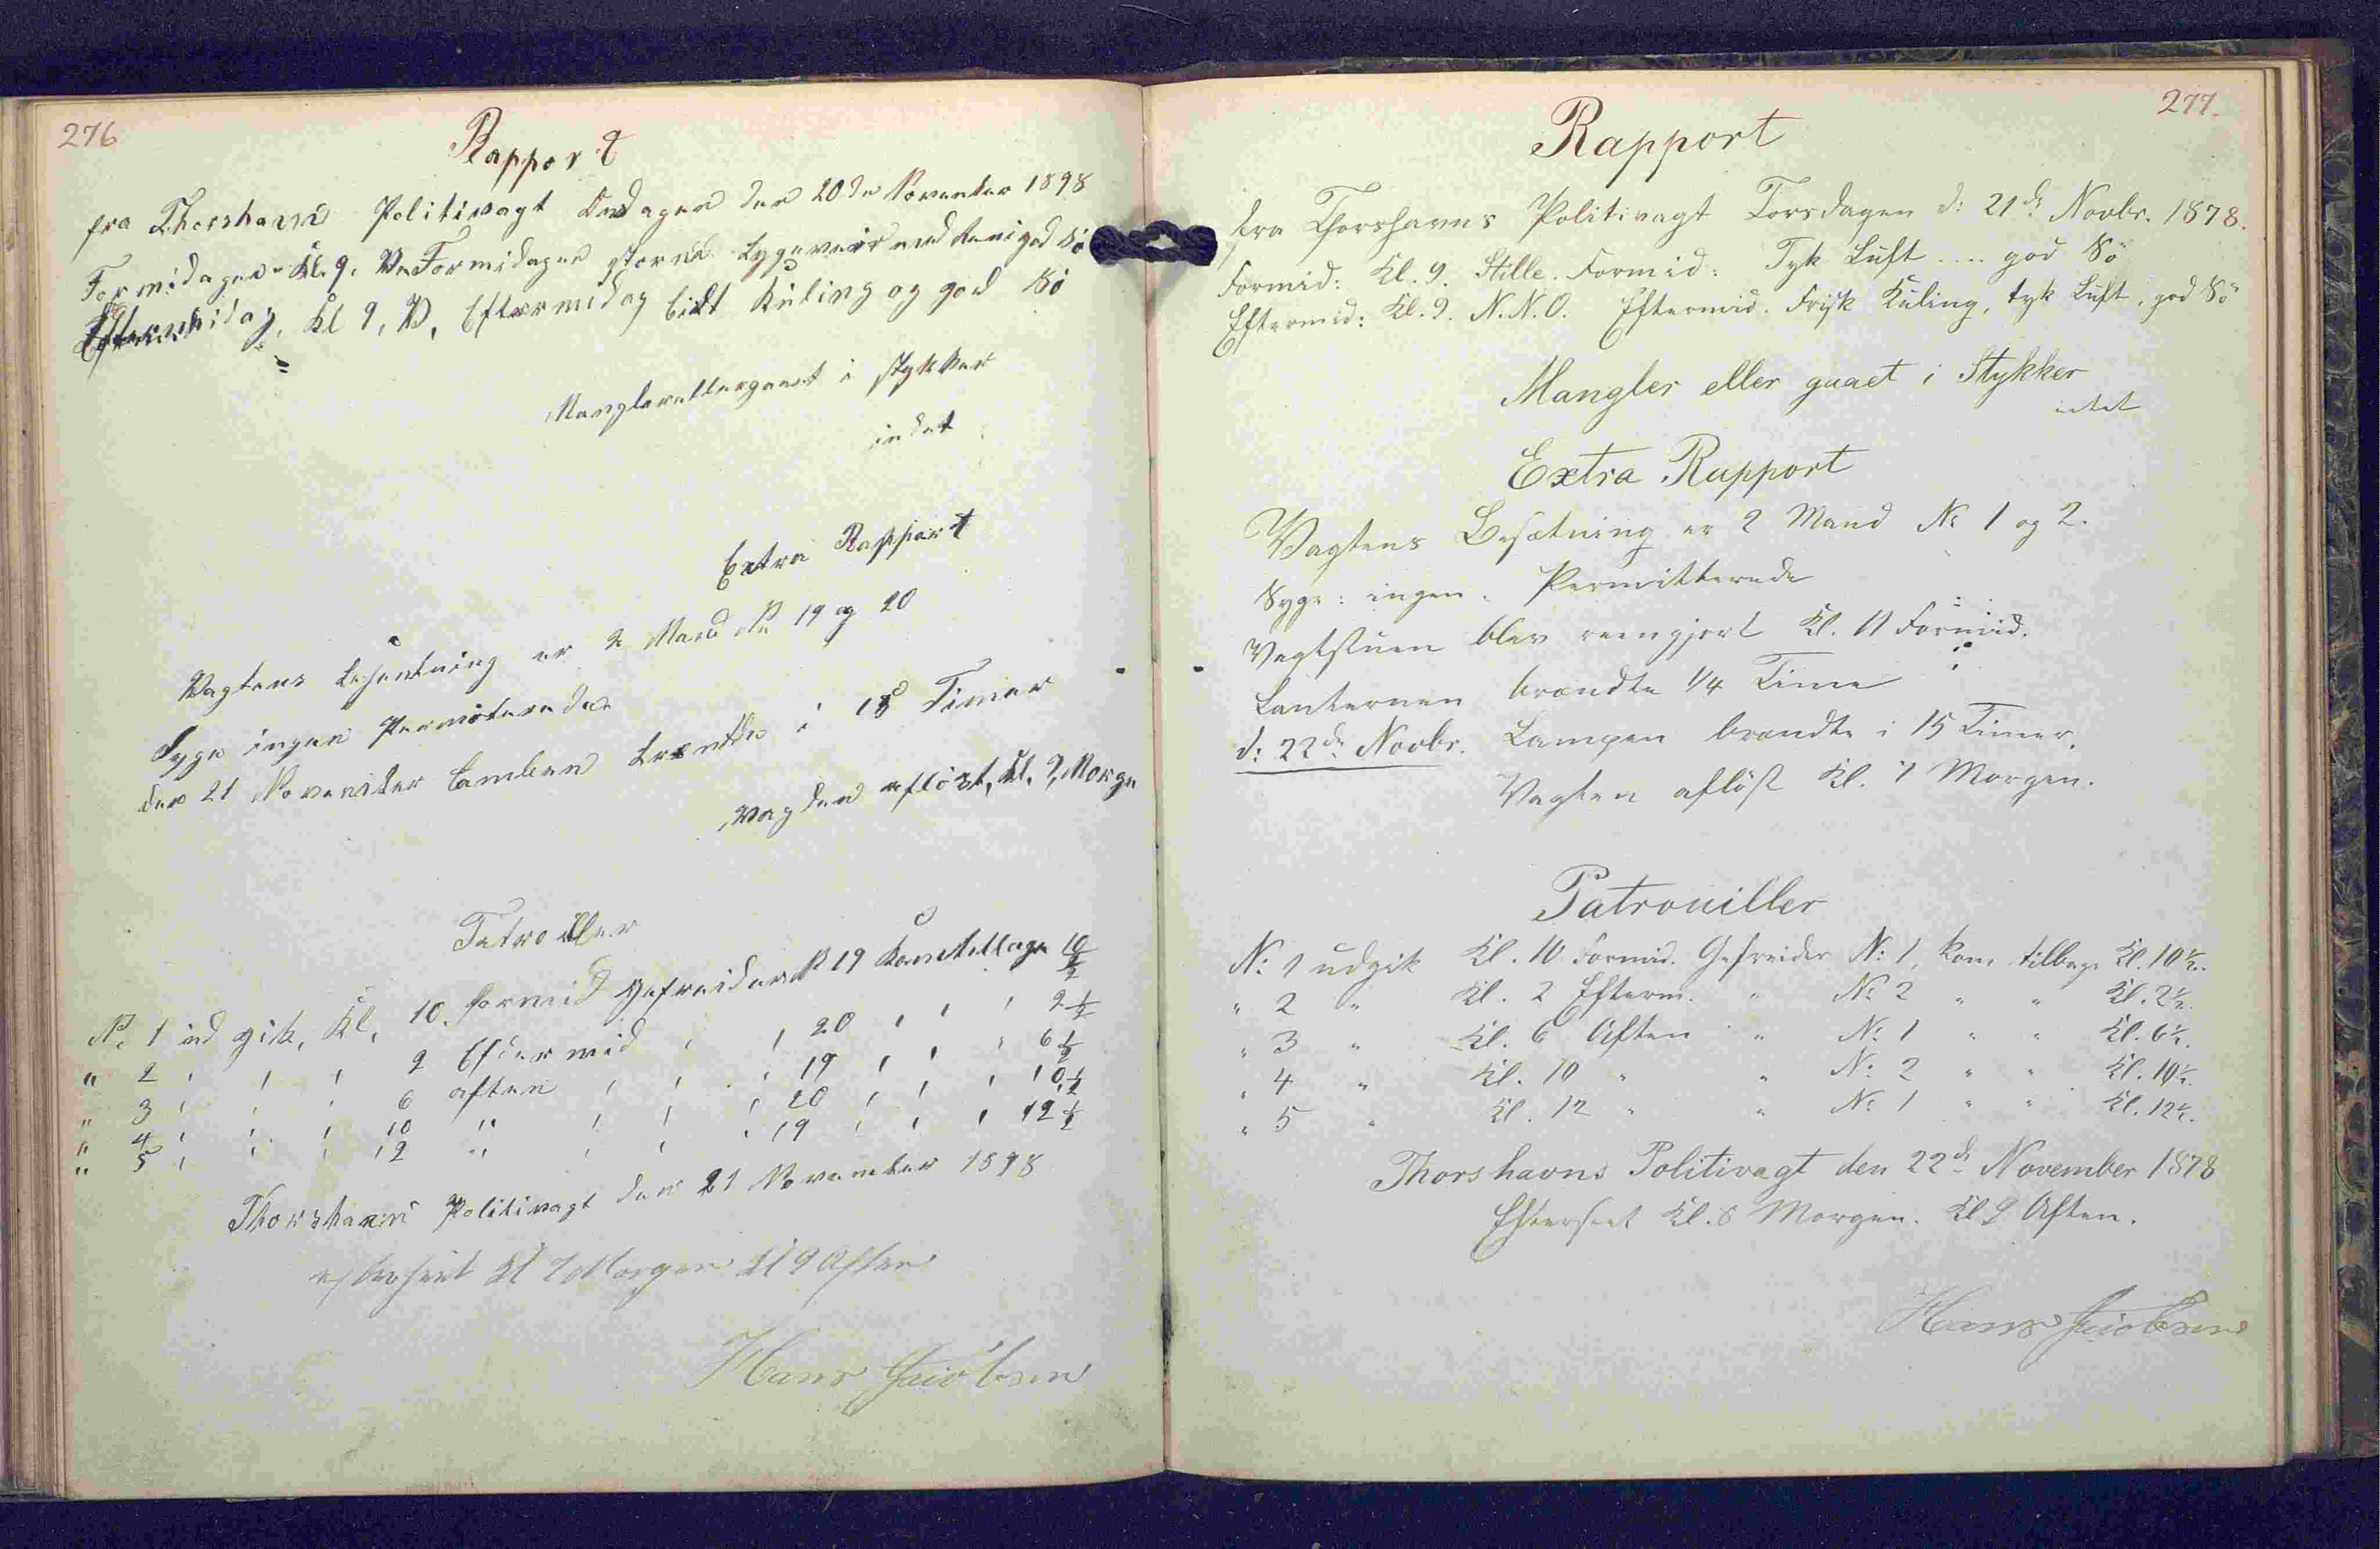 276
Rapport
fra Thorshavns Politivagt Onsdagen den 20de November 1878
Formidagen Kl. 9. V. Formidagen god Sö
Eftermidag, Kl 9, V, Eftermidag lidt Kuling og god Sö
Mangler eller gaaet i Stykker
indet
Extra Rapport
Vagtens Besentning er 2 Mand No 19 og 20
Syge ingen Permiterede
den 21 November Lamben brendte i 18 Timer
Vagden aflöst, Kl. 7, Morge
Patroller
No. 1 ud gik, Kl, 10. formid Gefreider No 19 Kom tilbage 10 1/2
" 2 " " " 2 Eftermid " " 20 " " " 2 1/2
" 3 " " " 6 aften " " " 19 " " " 6 1/2
" 4 " " " 10 " " " " 20 " " " 10 1/2
" 5 " " " 12 " " " " 19 " " " 12 1/2
Thorshavns Politivagt den 21 November 1878
efterseet Kl 7 Morgen Kl 9 Aften
Hans Jacobsen
277.
Rapport
fra Thorshavns Politivagt Torsdagen d: 21de Novbr. 1878.
Formid: Kl. 9. Stille. Formid: Tyk Luft .... god Sö
Eftermid: Kl. 9. N.N.O. Eftermid. Frisk Kuling, tyk Luft, god Sö
Mangler eller gaaet i Stykker
intet
Extra Rapport
Vagtens Besætning er 2 Mand No 1 og 2.
Syge: ingen. Permitterede
Vagtstuen blev reengjort Kl. 11 Formid.
Lanternen brændte 1/4 Time
d: 22de Novbr. Lampen brændte i 15 Timer.
Vagten aflöst Kl. 7 Morgen.
Patrouiller
No: 1 udgik Kl. 10 Formid. Gefreider No: 1, kom tilbage Kl. 10 1/2.
" 2 " Kl. 2 Efterm. " No: 2 " " Kl. 2 1/2.
" 3 " Kl. 6 Aften " No: 1 " " Kl. 6 1/2.
" 4 " Kl. 10 " " No: 2 " " Kl. 10 1/2.
" 5 " Kl. 12 " " No: 1 " " Kl. 12 1/2.
Thorshavns Politivagt den 22de November 1878
Efterseet Kl. 8 Morgen. Kl 9 Aften.
Hans Jacobsen